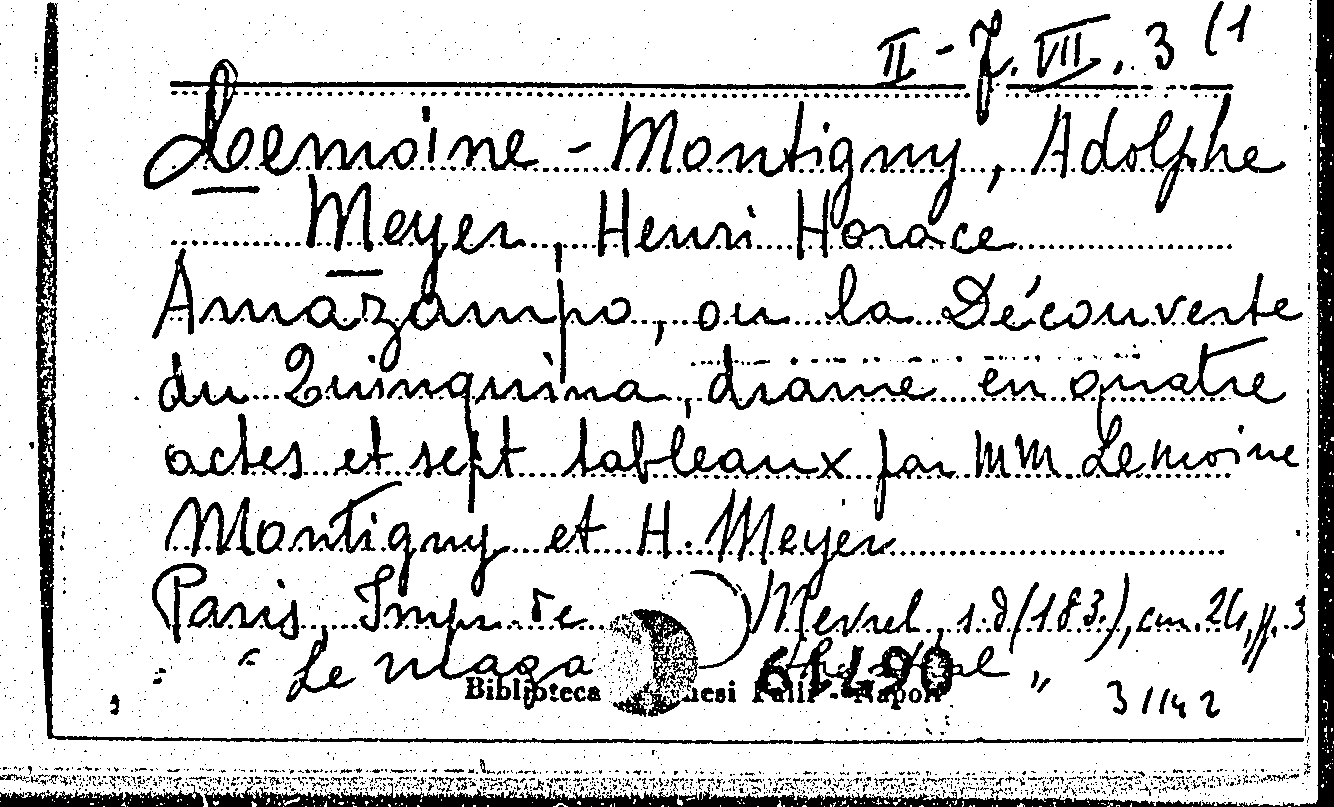 II - J. VII. 3 (1
Lemoine - Montigny, Adolphe
Meyer, Henri Horace
Amazampo, ou la Découverte
du Quinquina, drame en quatre
actes et sept tableaux par MM Lemoine
Montigny et H. Meyer
Paris, Impr. de Mevrel, s.d (183.), cm. 24, pp. 3
" Le maga "
61490
Biblioteca Napoli
31142